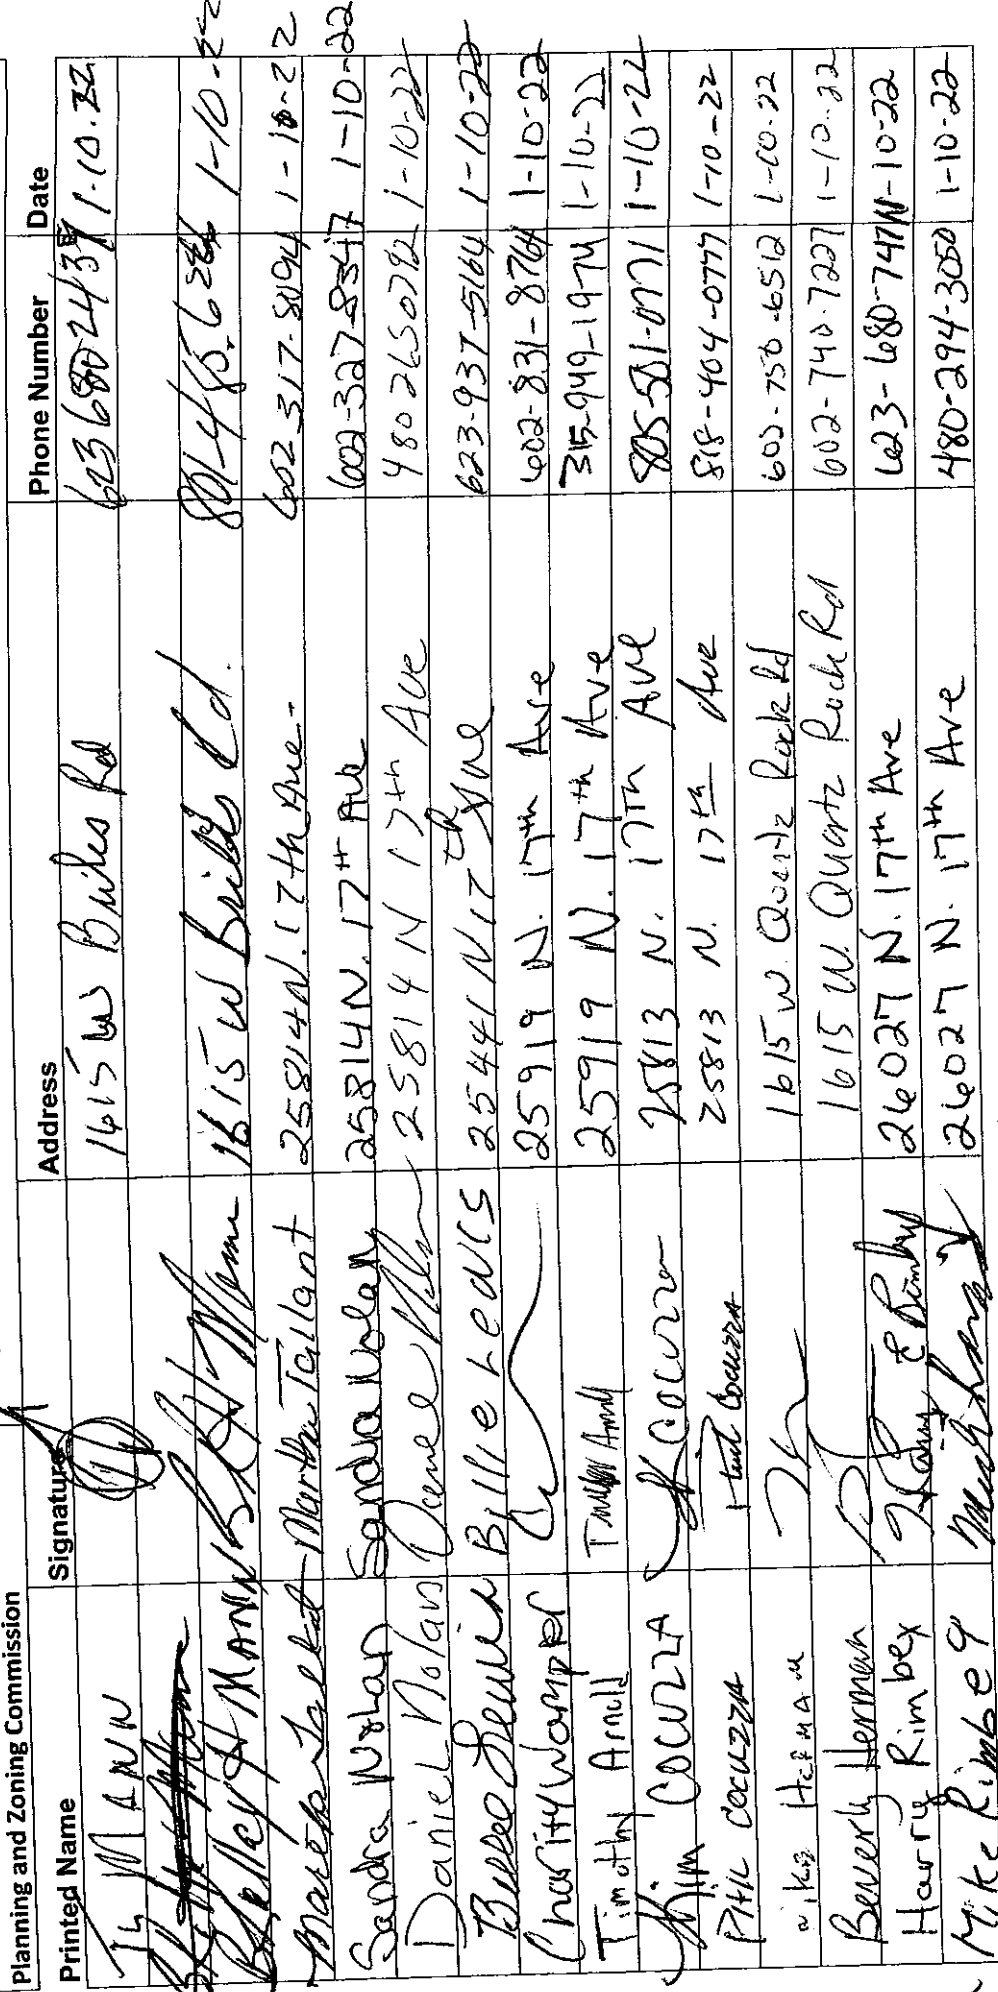 Planning and Zoning Commission
Printed Name Signature Address Phone Number Date
MANN 1615 W Briles Rd 623 680 2437 1.10.22
Kelley H MANN 1615 W Briles Rd. 801-485-6286 1-10-22
Martha Tallant Martha Tallant 25814 N. 17th Ave. 602 317-8094 1-10-22
Sandra Nolan Sandra Nolan 25814 N. 17th Ave 602-327-8347 1-10-22
Daniel Nolan 25814 N 17th Ave 480 2650792 1-10-22
Billie Lewis Billie Lewis 25441 N 17th Ave 623-937-5164 1-10-22
Charity Wampler 25919 N. 17th Ave 602-831-8764 1-10-22
Timothy Arnold 25919 N. 17th Ave 315-949-1974 1-10-22
Kim COCUZZA COCUZZA 25813 N. 17th Ave 805-501-0771 1-10-22
PHIL COCUZZA Phil Cocuzza 25813 N. 17th Ave 818-404-0777 1-10-22
Mike Herman 1615 W. Quartz Rock Rd 602-750-6512 1-10-22
Beverly Herman 1615 W. Quartz Rock Rd 602-740-7227 1-10-22
Harry Rimbey Harry E Rimbey 26027 N. 17th Ave 623-680-7471 1-10-22
Mike Rimbey 26027 N. 17th Ave 480-294-3050 1-10-22